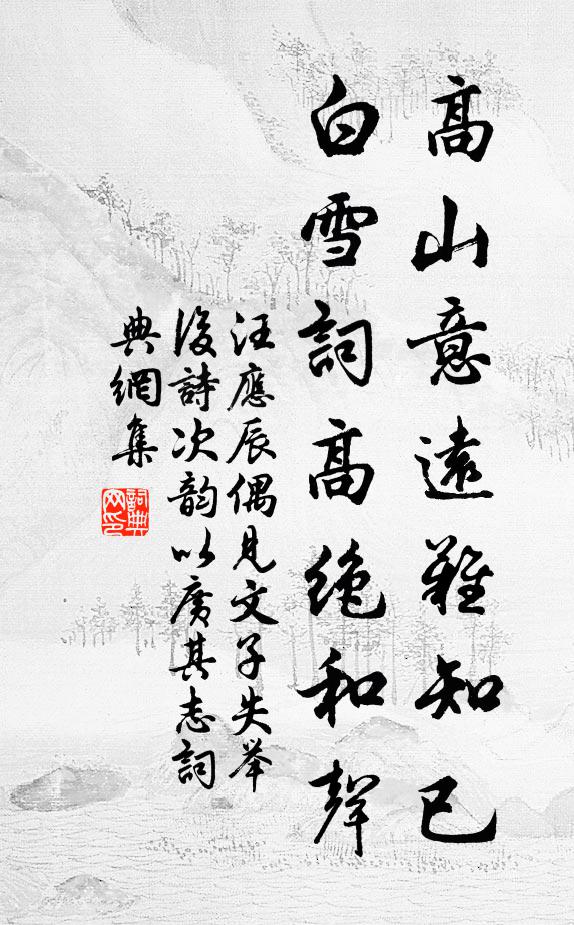 高山意遠難知己
白雪詞高絶和聲
汪應辰偶見文子失举
後詩次韵以廣其志詞
典網集
詞典网印